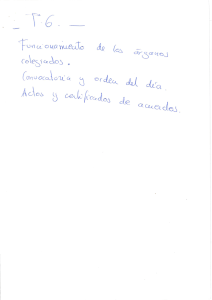 T6.
Funcionamiento de los órganos
colegiados.
Convocatoria y orden del día.
Actas y certificados de acuerdos.